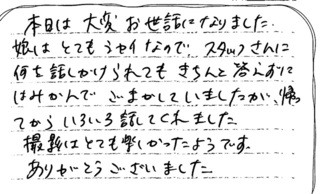 本日は大変お世話になりました.
娘はとてもシャイなので、スタッフさんに
何を話しかけられてもきちんと答えずに
はみかんで ごまかしていましたが、帰っ
てからいろいろ話してくれました
撮影はとても楽しかったようです.
ありがとうございました